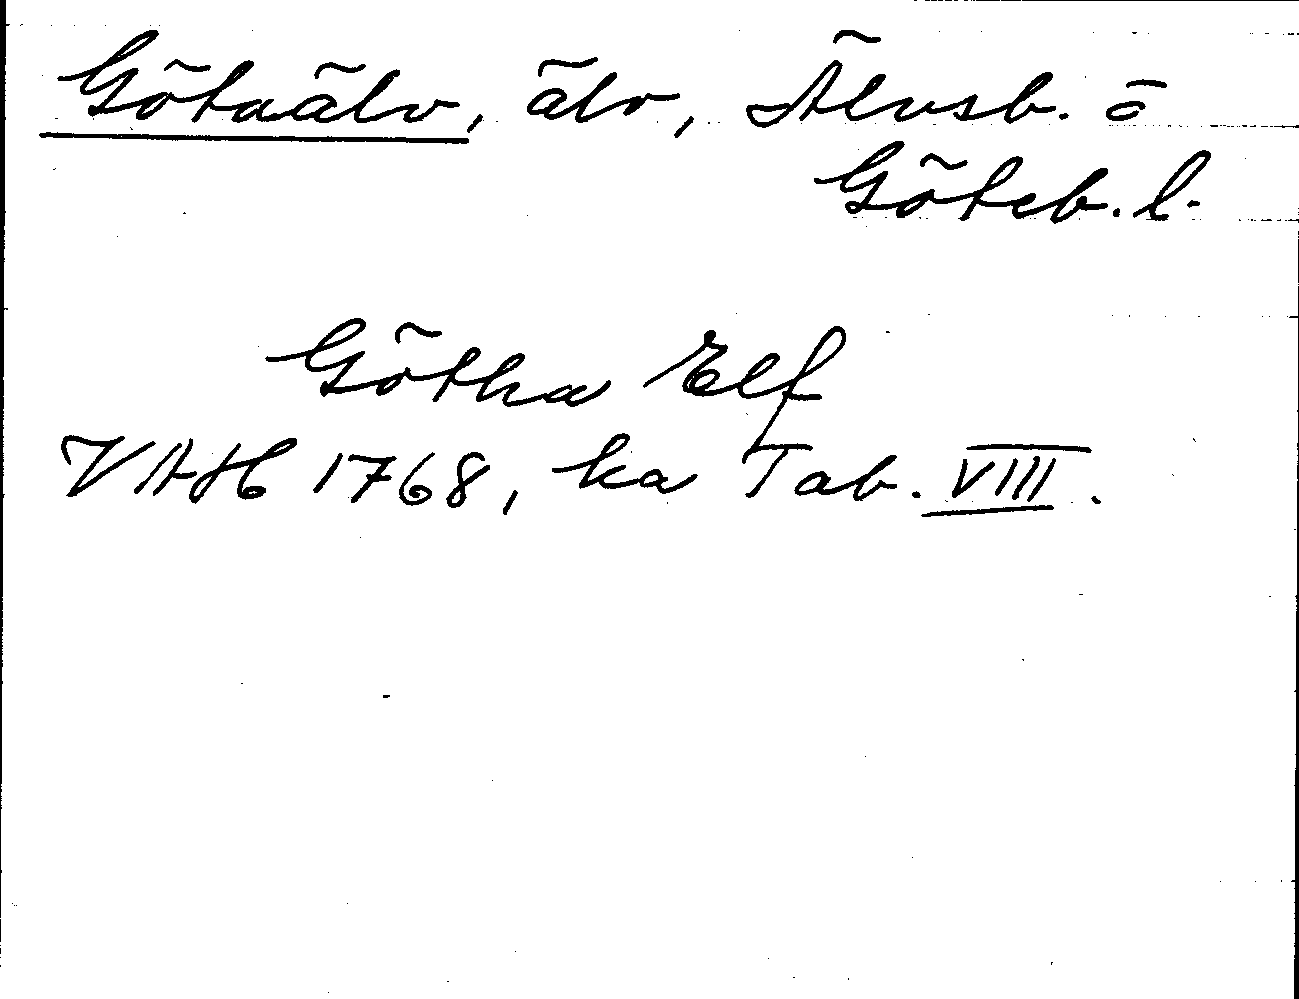 Götaälv, älv, Älvsb. o
Göteb. l.
Götha Elf
VAH 1768, ka Tab. VIII.